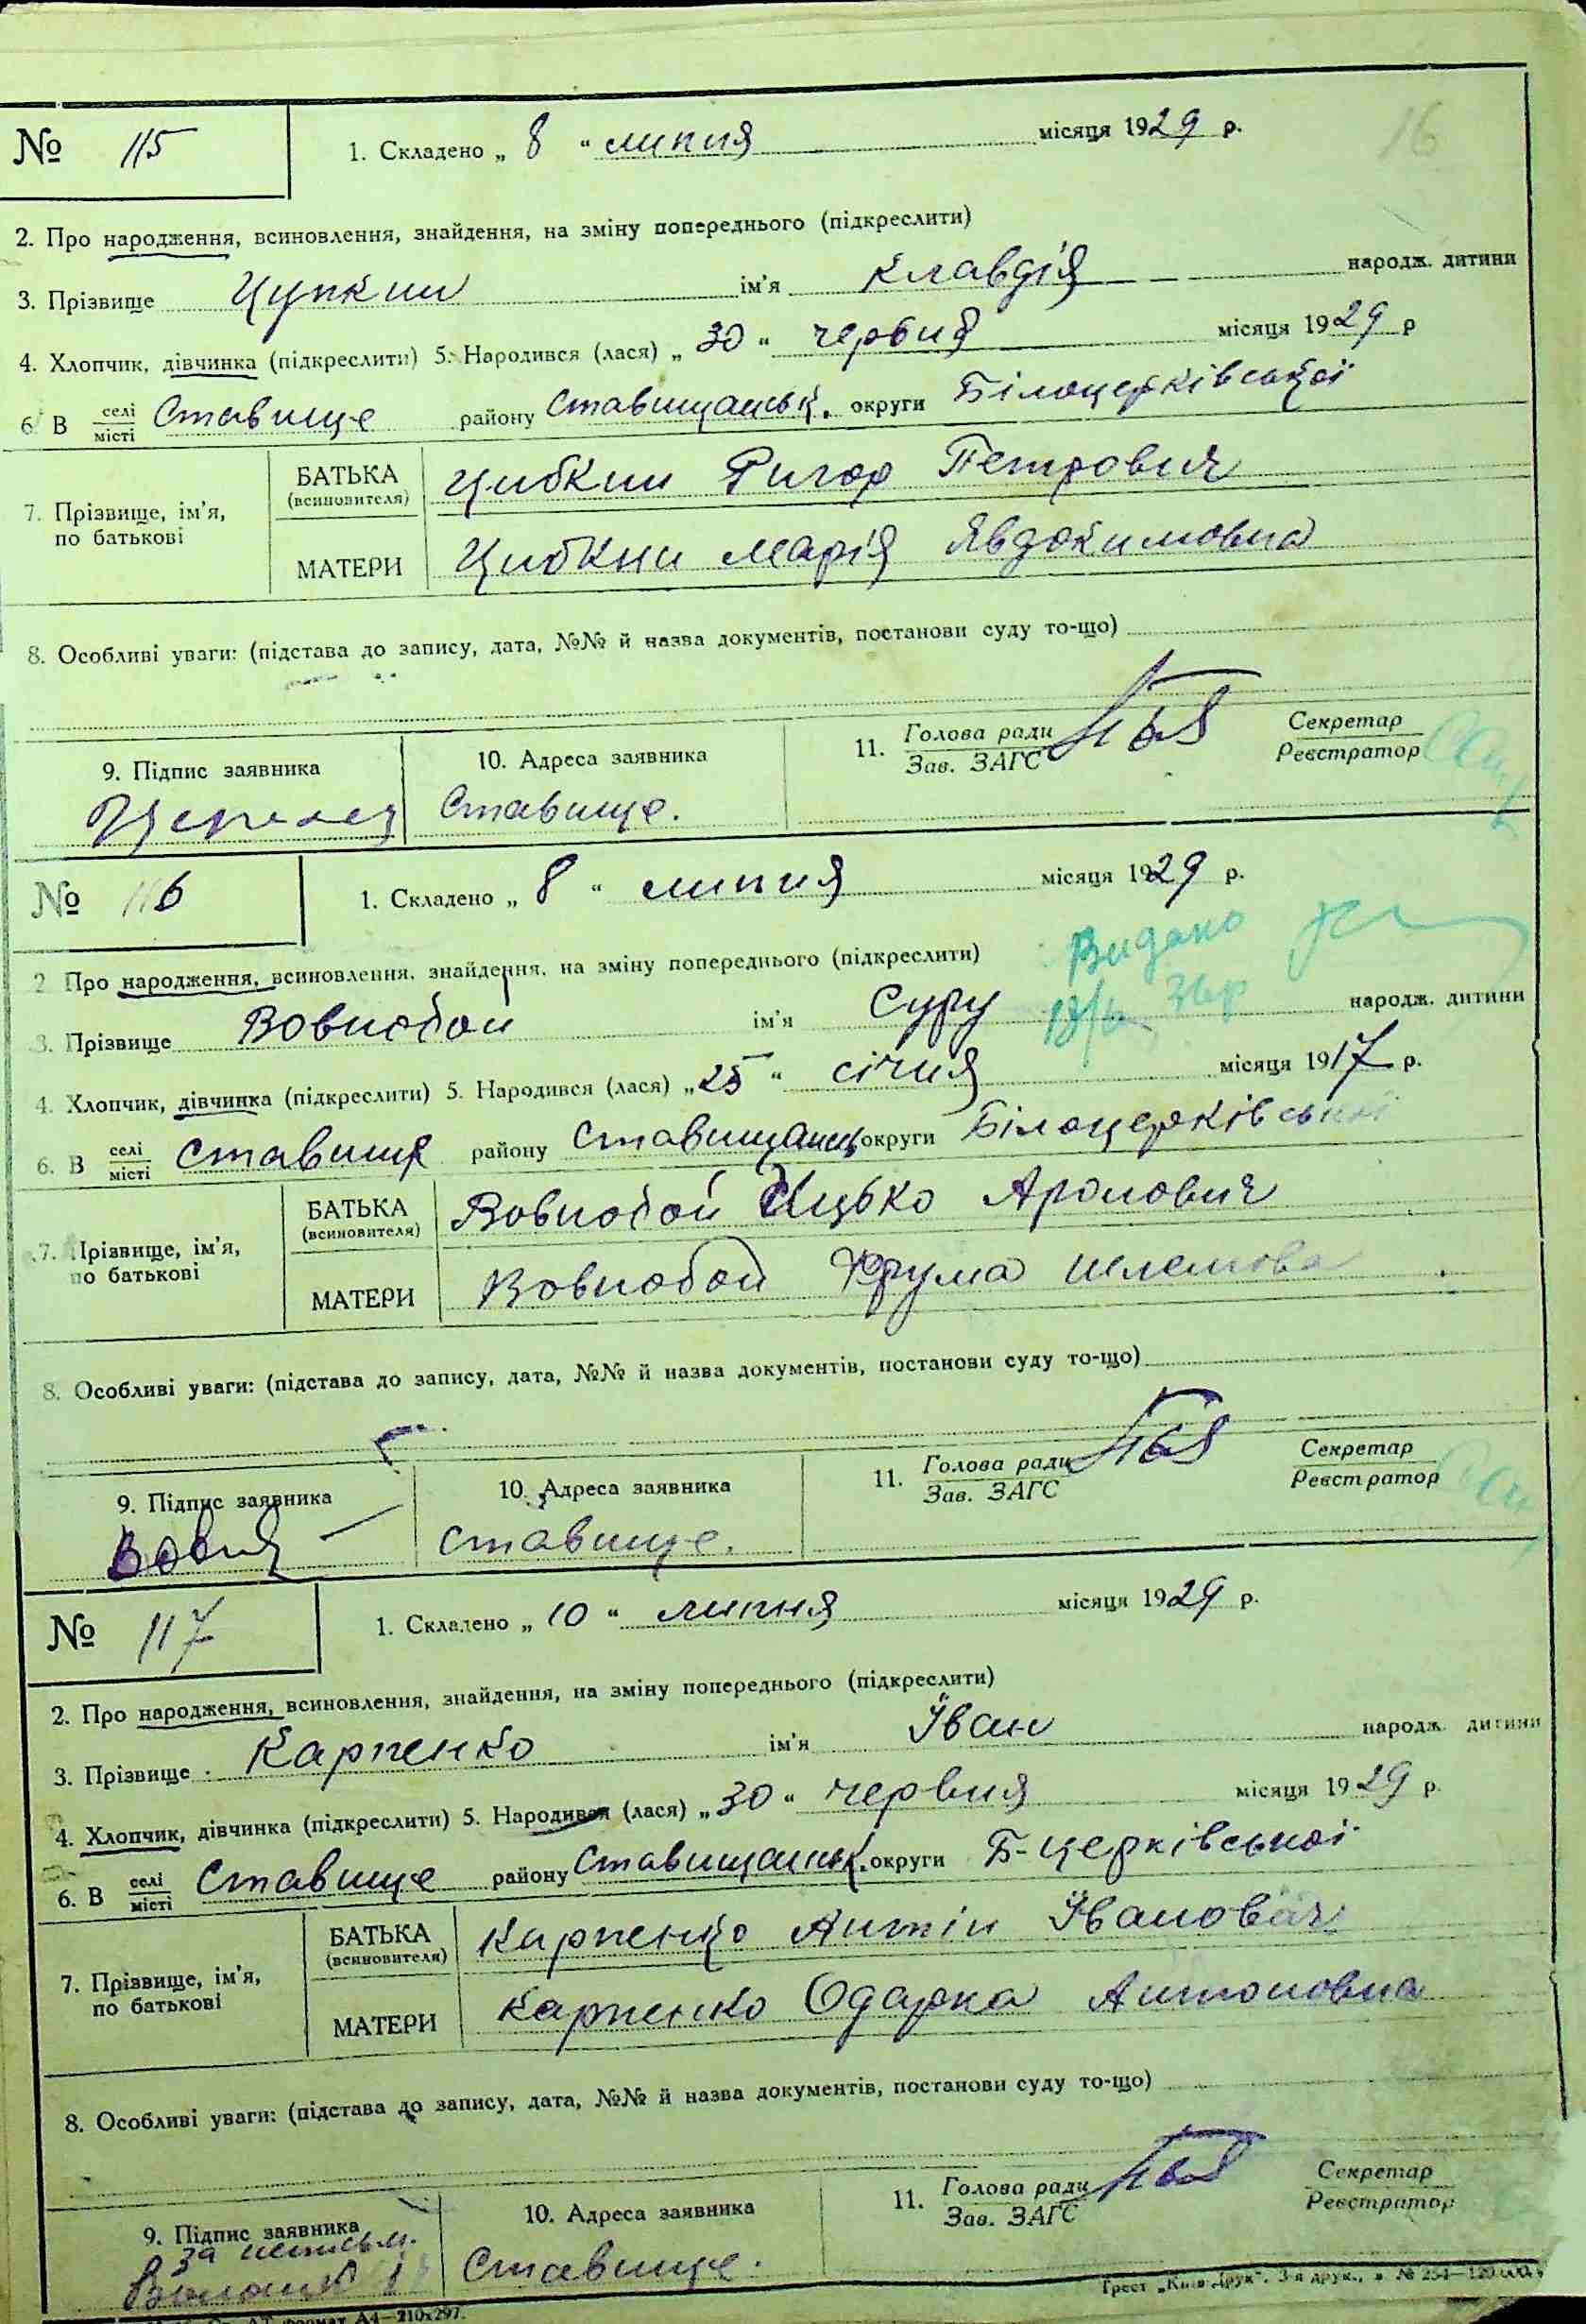 16
№ 115
1. Складено „ 8 “ липня місяця 1929 р.
2. Про народження, всиновлення, знайдення, на зміну попереднього (підкреслити)
3. Прізвище Цупкин ім'я Клавдія народж. дитини
4. Хлопчик, дівчинка (підкреслити) 5. Народився (лася) „ 30 “ червня місяця 1929 р
6. В селі місті Ставище району Ставищанськ. округи Білоцерківської
7. Прізвище, ім'я, по батькові
БАТЬКА (всиновителя) Цибкин Ригор Петрович
МАТЕРИ Цибкин Марія Явдокимовна
8. Особливі уваги: (підстава до запису, дата, №№ й назва документів, постанови суду то-що)
9. Підпис заявника
10. Адреса заявника Ставище.
11. Голова ради Зав. ЗАГС
Секретар Реєстратор
№ 116
1. Складено „ 8 “ липня місяця 1929 р.
Видано
2 Про народження, всиновлення, знайдення, на зміну попереднього (підкреслити)
3. Прізвище Вовнобой ім'я Суру народж. дитини
4. Хлопчик, дівчинка (підкреслити) 5. Народився (лася) „ 25 “ січня місяця 1917 р.
6. В селі місті Ставище району Ставищанськ округи Білоцерківської
7. Прізвище, ім'я, по батькові
БАТЬКА (всиновителя) Вовнобой Ицько Аронович
МАТЕРИ Вовнобой Фрума Шлемова
8. Особливі уваги: (підстава до запису, дата, №№ й назва документів, постанови суду то-що)
9. Підпис заявника
10. Адреса заявника Ставище.
11. Голова ради Зав. ЗАГС
Секретар Реєстратор
№ 117
1. Складено „ 10 “ липня місяця 1929 р.
2. Про народження, всиновлення, знайдення, на зміну попереднього (підкреслити)
3. Прізвище Карпенко ім'я Іван народж. дитини
4. Хлопчик, дівчинка (підкреслити) 5. Народився (лася) „ 30 “ червня місяця 1929 р.
6. В селі місті Ставище району Ставищанськ. округи Б-церківської
7. Прізвище, ім'я, по батькові
БАТЬКА (всиновителя) Карпенко Антін Іванович
МАТЕРИ Карпенко Одарка Антоновна
8. Особливі уваги: (підстава до запису, дата, №№ й назва документів, постанови суду то-що)
9. Підпис заявника
за неписьм.
10. Адреса заявника Ставище.
11. Голова ради Зав. ЗАГС
Секретар Реєстратор
Трест „Київ-Друк“. 3-я друк.,
формат А4—210х297.